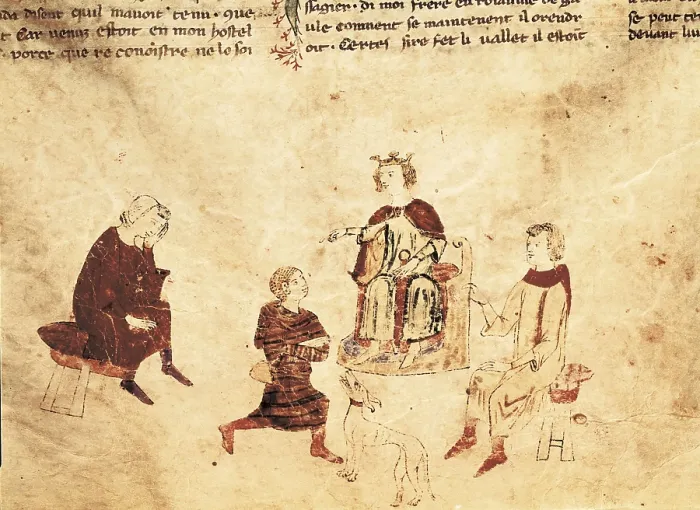 disent quil mauoit tenu. que
t Car uenuz estoit en mon hostel
porce que reconoistre ne lo soi
sagier. di moi frere en roiaume de ga
ule coment se maintenent il orendr
oit. Certes sire fet li uallet il estoit
se peut
deuant lui